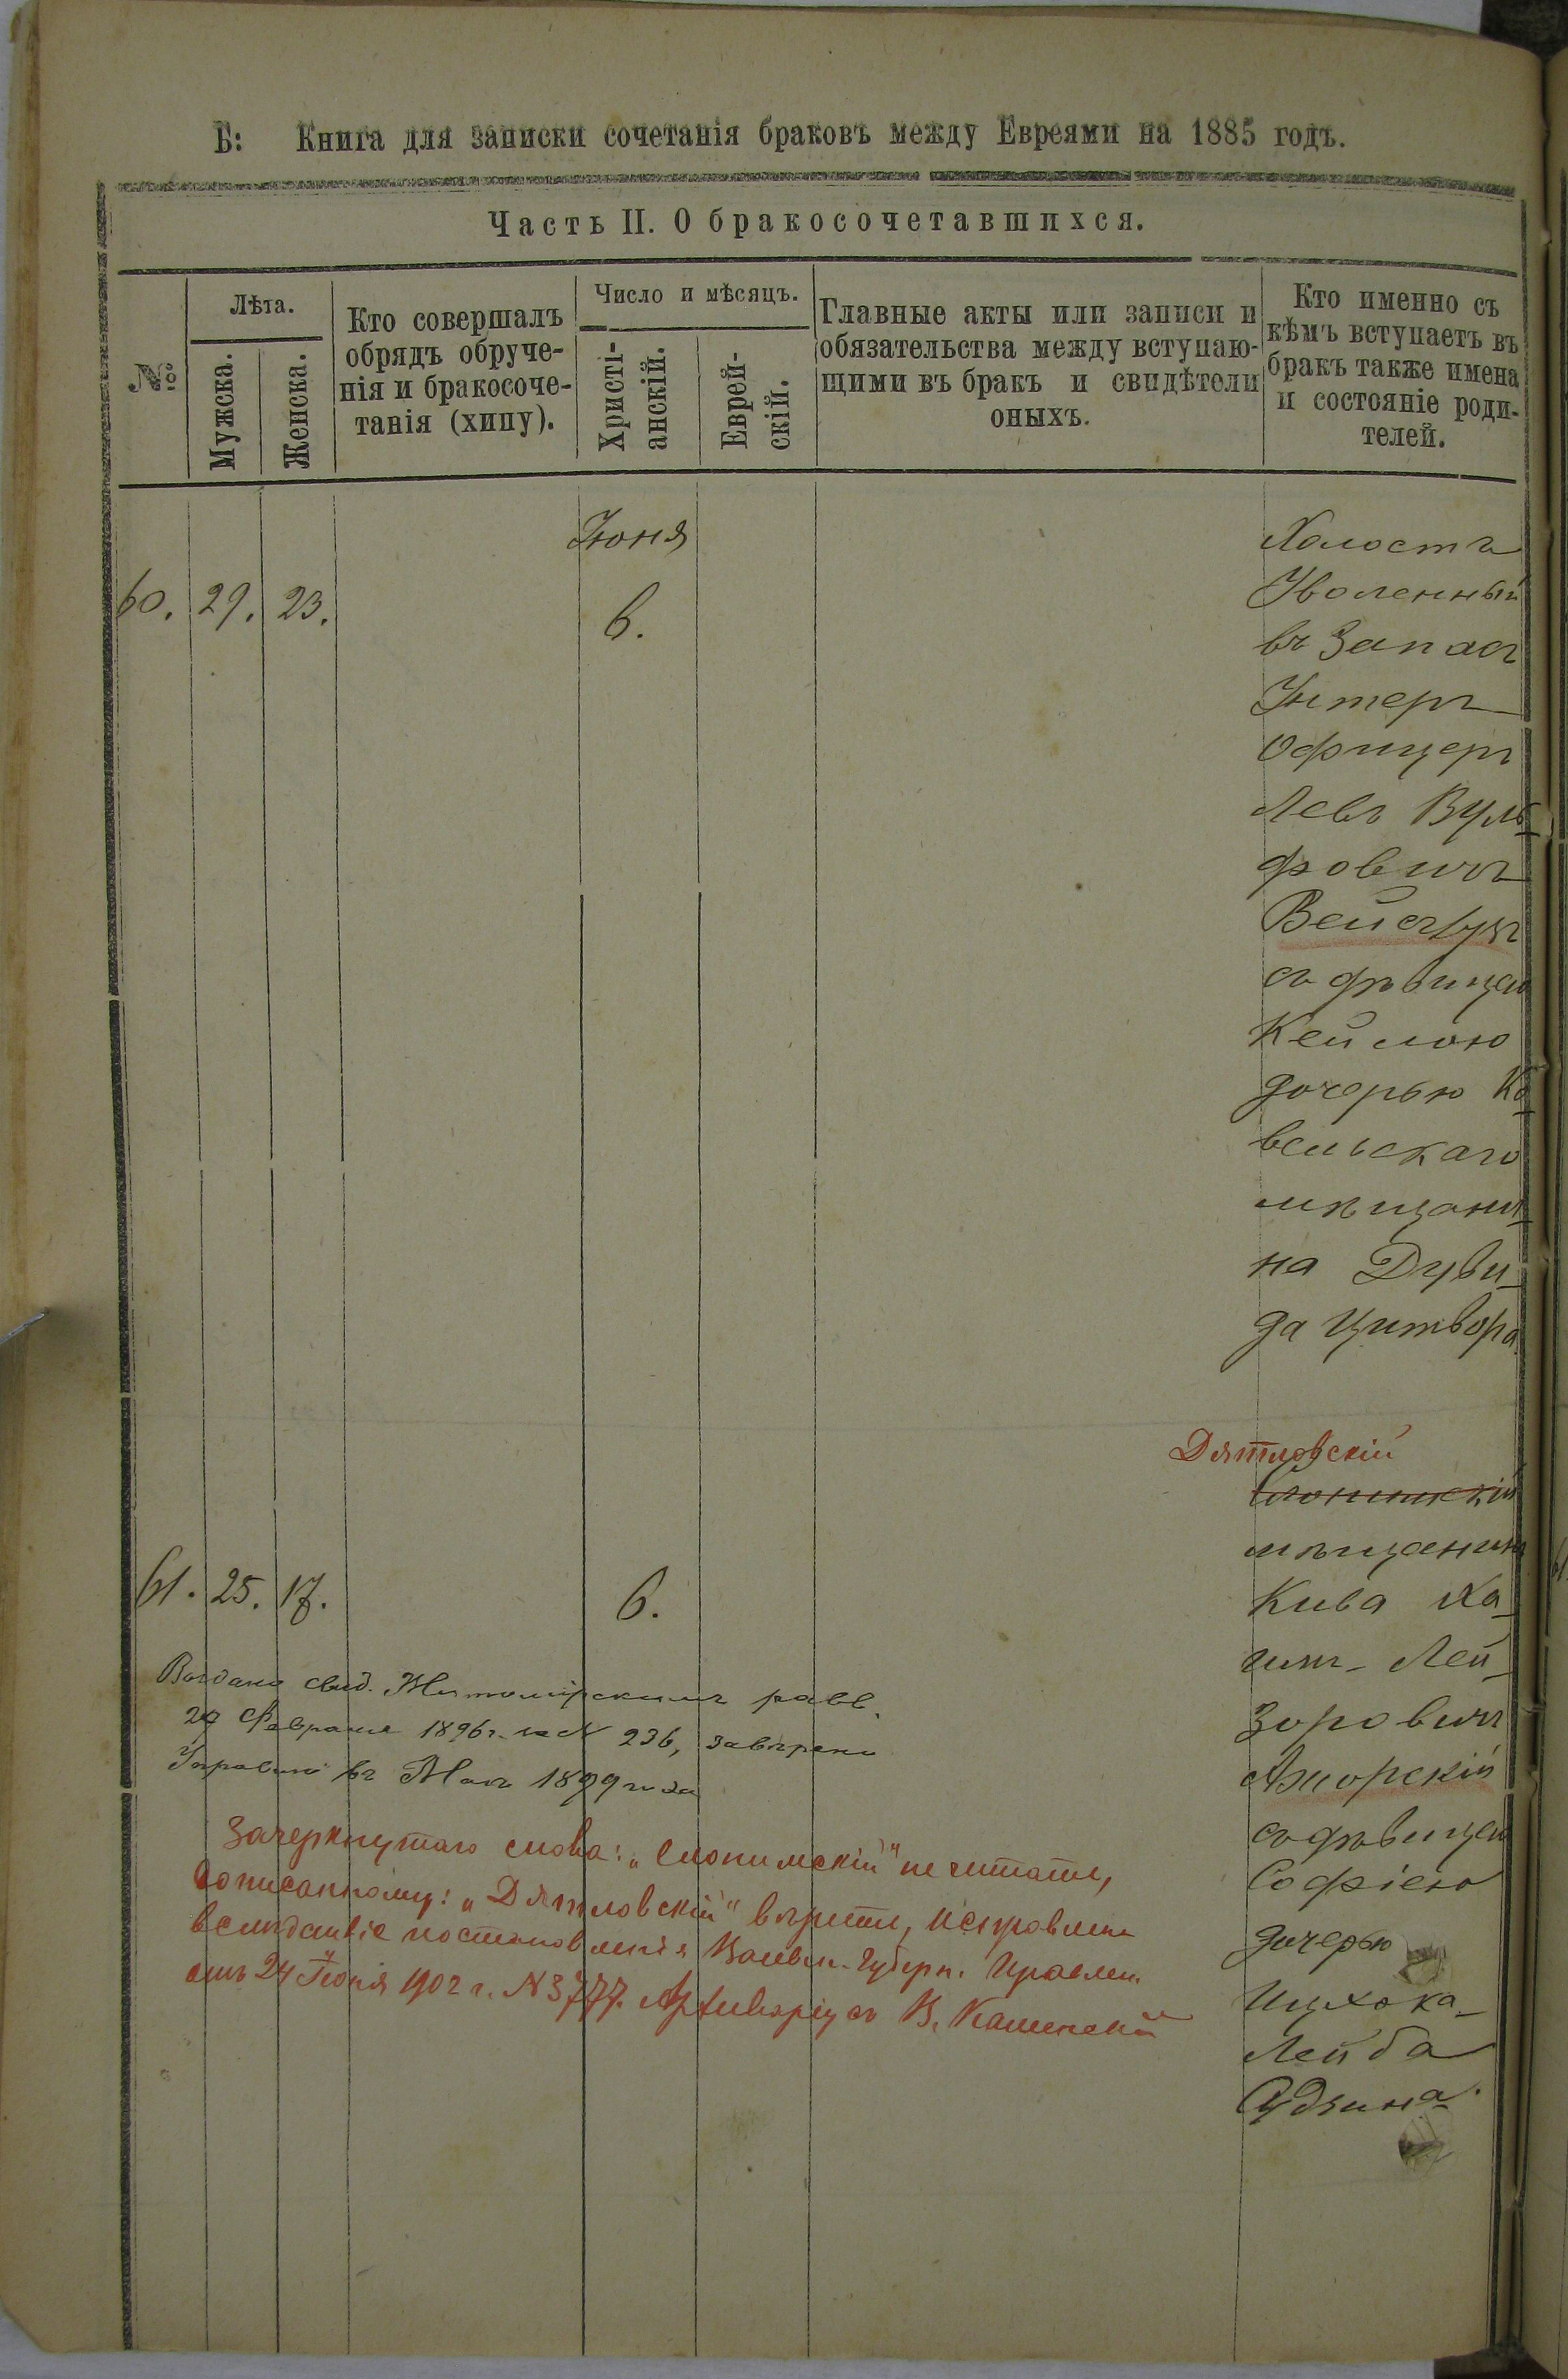 Б: Книга для записки сочетанія браковъ между Евреями на 1885 годъ.
Часть II. О бракосочетавшихся.
№
Лѣта.
Мужска.
Женска.
Кто совершалъ
обрядъ обруче-
нія и бракосоче-
танія (хипу).
Число и мѣсяцъ.
Христі-
анскій.
Еврей-
скій.
Главные акты или записи и
обязательства между вступаю-
щими въ бракъ и свидѣтели
оныхъ.
Кто именно съ
кѣмъ вступаетъ въ
бракъ также имена
и состояніе роди-
телей.
Іюня
60. 29. 23. 6.
Холостъ
Уволенный
въ Запасъ
Унтеръ
Офицеръ
Левъ Вуль-
фовичъ
съ дѣвицею
Кейлою
дочерью Ко-
вельскаго
мѣщани-
на Дуви-
да Цитвора
Дятловскій
Слонимскій
мѣщанинъ
61. 25. 17. 6.
Кива Ха-
имъ-Лей-
зоровичъ
Азiорскій
съ дѣвицею
Софіею
дочерью
Ицхока-
Лейба
Судзина.
Выдано свид. Житомірскимъ равв.
Февраля 1896 г. за № 236, завѣрено
Управою въ Маѣ 1899 года
Зачеркнутаго слова: „Слонимскій" не читать,
дописанному: „Дятловскій" вѣрить, исправлено
вслѣдствіе постановленія Волын. Губерн. Правлен.
отъ 24 Іюня 1902 г. № 3777. Архиваріусъ В. Каменскій